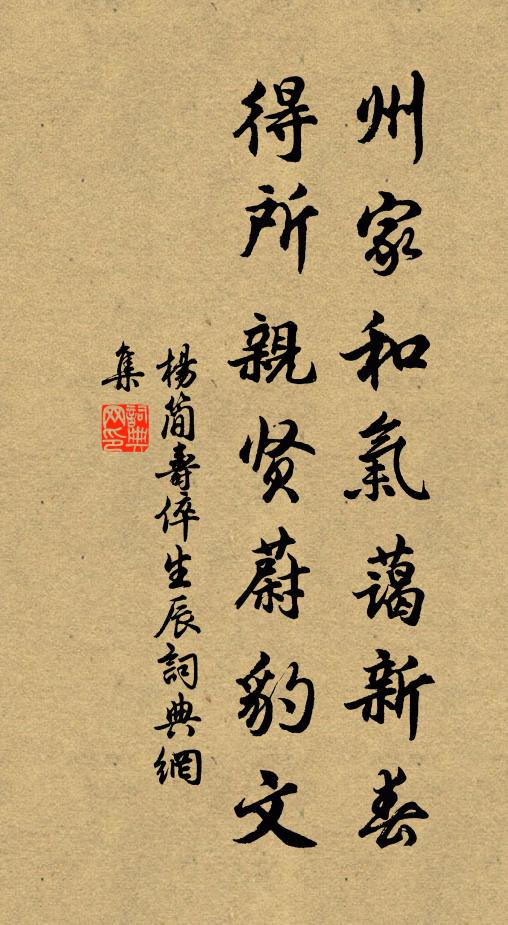 州家和氣藹新春
得所親贤蔚豹文
楊简壽倅生辰詞典網
集
詞典網印